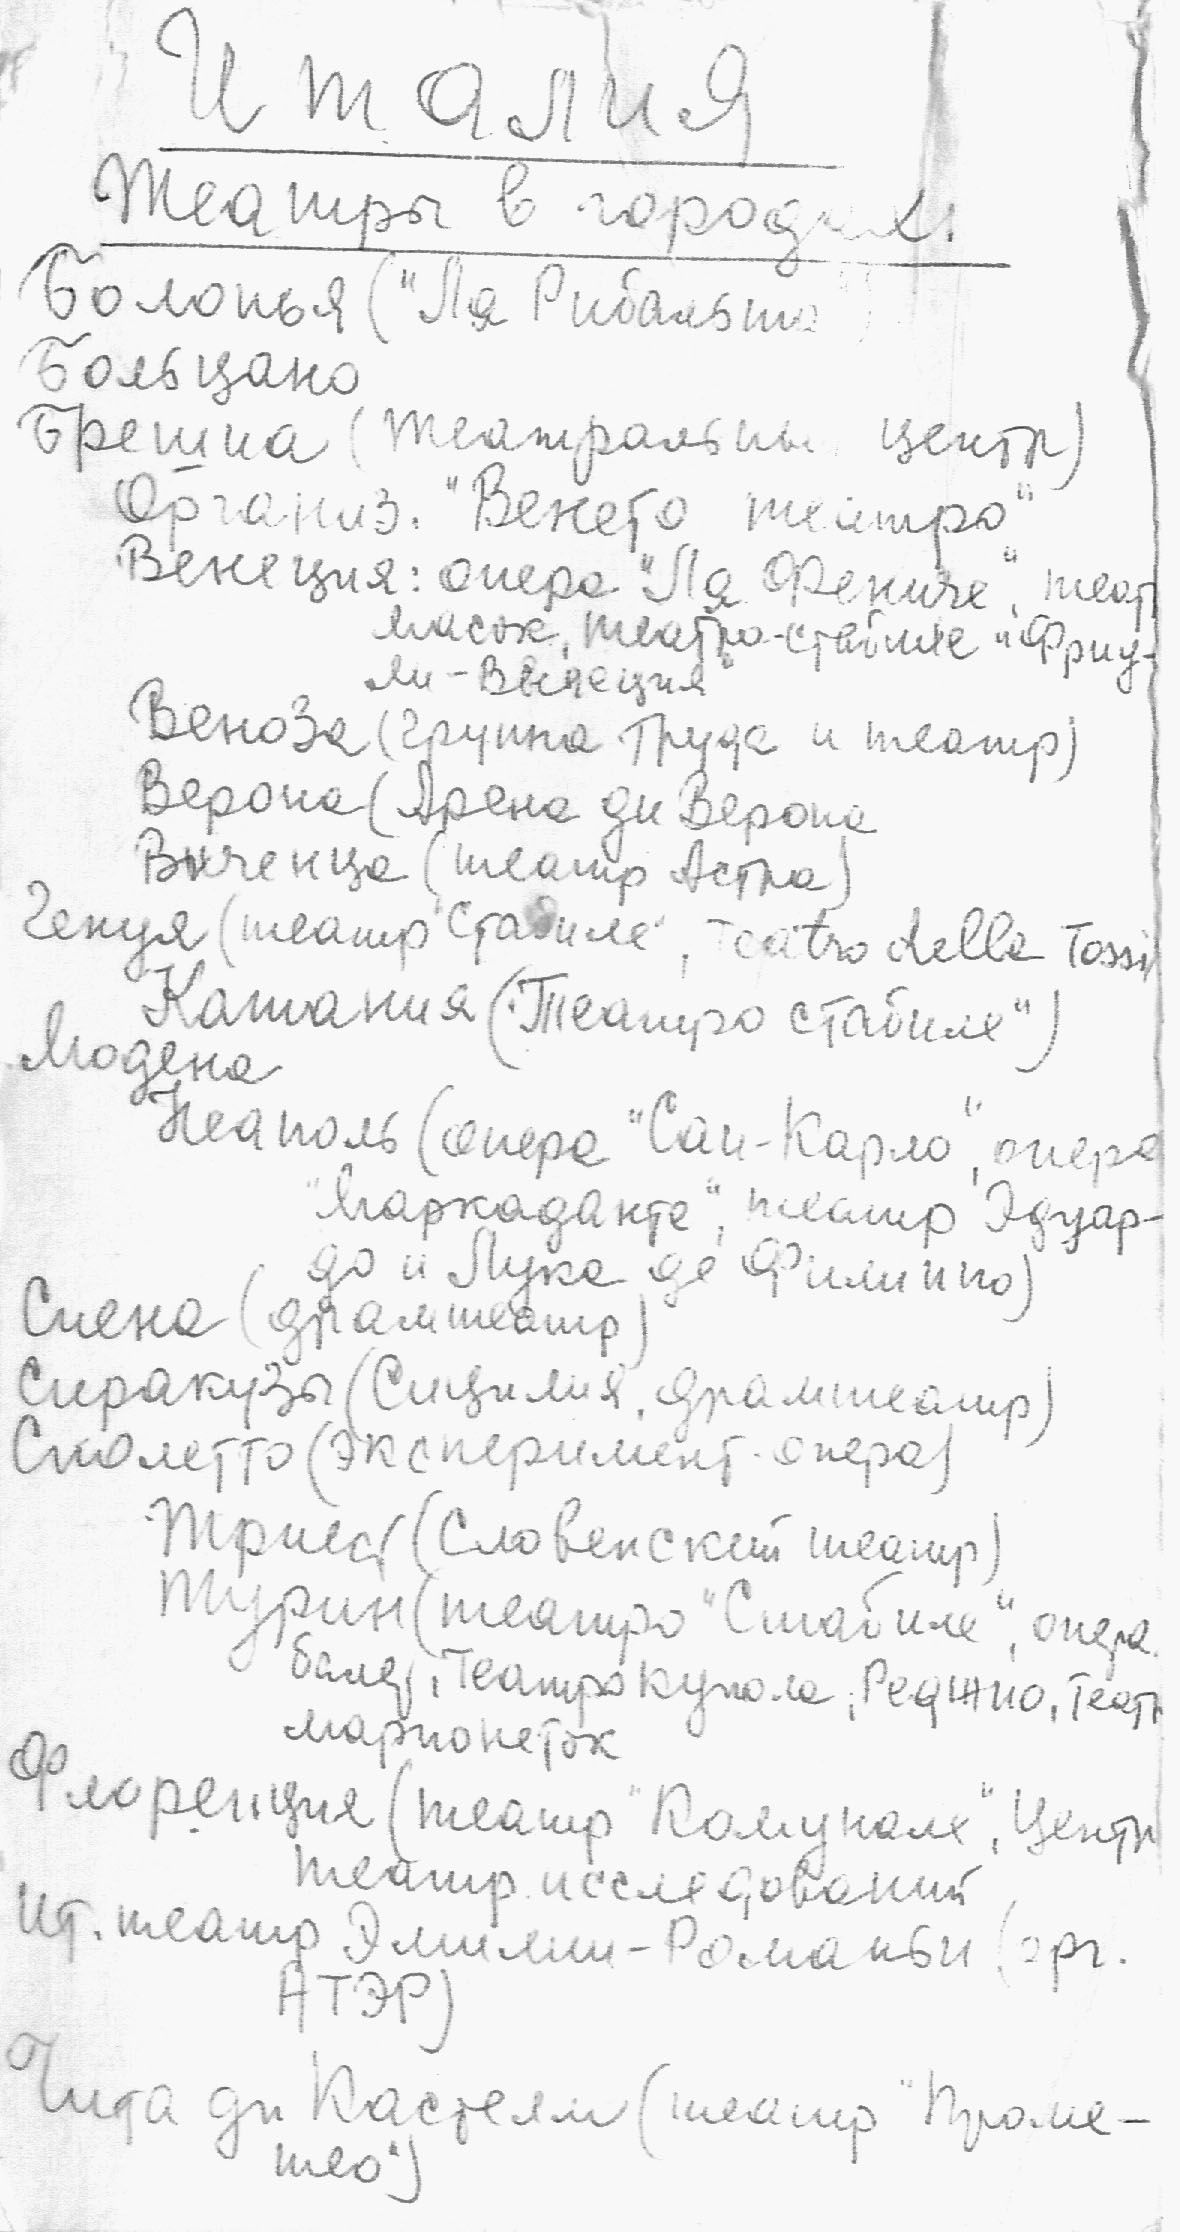 Италия
Театры в городах:
Болонья ("Ля Рибальта")
Больцано
Брешиа (театральны центр)
Организ. "Венето театро"
Венеция: опера "Ля Фениче", театр
масок, театро-стабиле "Фриу-
ли-Венеция"
Веноза (группа Труда и театр)
Верона (Арена ди Верона
Виченца (театр Астра)
Генуя (театр "Стабиле", Teatro della Tossi
Катания ("Театро стабиле")
Модена
Неаполь (опера "Сан-Карло", опера
"Маркаданте", театр Эдуар-
до и Лука де Филиппо)
Сиена (драмтеатр)
Сиракузы (Сицилия, драмтеатр)
Сполетто (эксперимент. опера)
Триест (Словенский театр)
Турин (театро "Стабиле", опера.
балет, Театро Купола, Реджио, Театр
марионеток
Флоренция (театр "Комунале", Центр
театр. исследований
Ит. театр Эмилии-Романьи (орг.
АТЭР)
Чита ди Кастелли (театр "Проме-
тео")